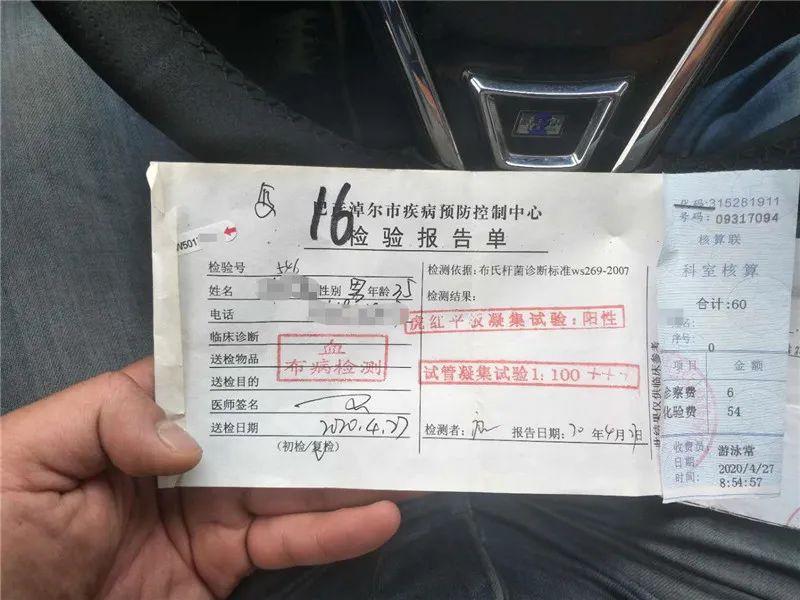 16
巴彦淖尔市疾病预防控制中心
检验报告单
W501
检验号 546
姓名 性别 男 年龄 35
电话
临床诊断
送检物品 血
布病检测
送检目的
医师签名
送检日期 2020.4.27
(初检/复检)
检测依据: 布氏杆菌诊断标准ws269-2007
检测结果:
虎红平板凝集试验:阳性
试管凝集试验1:100 +++
检测者: 报告日期: 20 年 4 月 日
此结果仅供临床参考
代码:315281911
号码:09317094
核算联
科室核算
合计:60
姓名:
序号:
0
项目 金额
诊察费 6
化验费 54
收费员 游泳常
日期: 2020/4/27
时间: 8:54:57